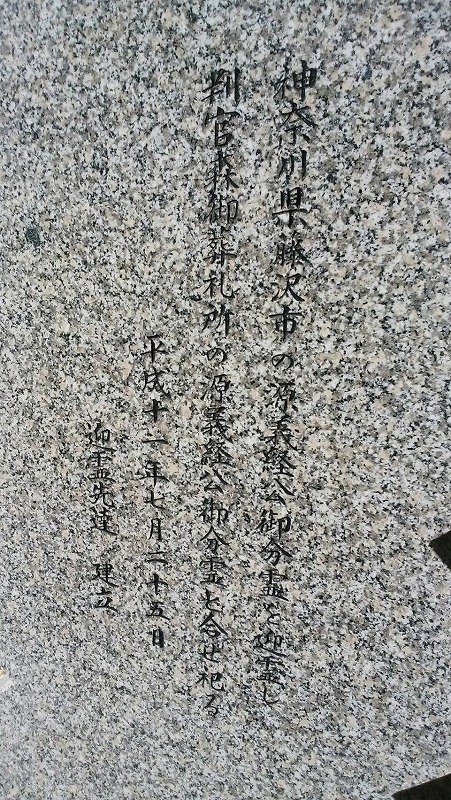 神奈川県藤沢市の源義経公御分霊を迎霊し
判官森御葬礼所の源義経公御分霊と合せ祀る
平成十一年七月二十五日
迎霊先達　建立